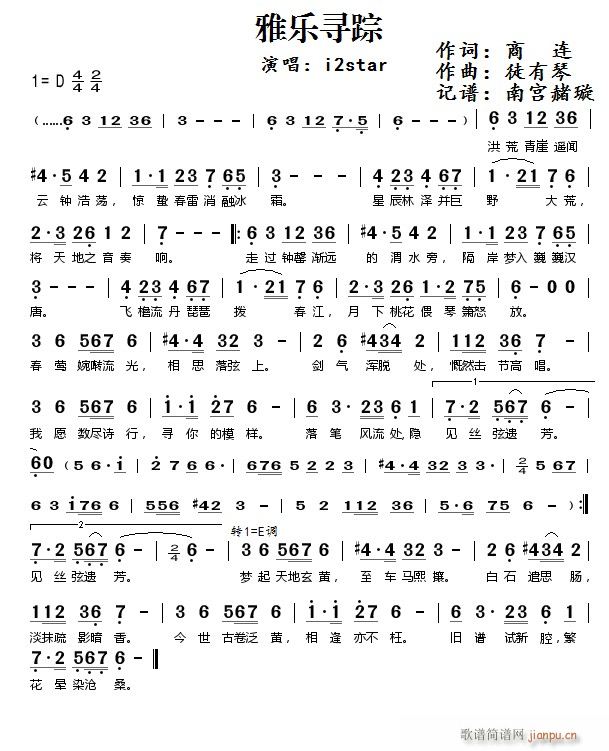 雅乐寻踪
演唱：i2star
作词：商 连
作曲：徒有琴
记谱：南宫赭璇
1=D 4/4 2/4
(……6 3 12 36 | 3 - - - | 6 3 12 7·5 | 6 - - - ) | 6 3 12 36
洪荒青崖遥闻
#4·5 4 2 | 1·1 23 4 65 | 3 - - - | 4 23 4 67 | 1·21 7 6
云钟浩荡，惊蛰春雷消融冰霜。星辰林泽并巨野大荒，
2·3 26 1 2 | 7 - - - |: 6 3 12 36 | #4·5 4 2 | 1·1 23 4 65
将天地之音奏响。走过钟磬渐远的渭水旁，隔岸梦入巍巍汉
3 - - - | 4 23 4 67 | 1·21 7 6 | 2·3 1·2 75 | 6 - 0 0
唐。飞檐流丹琵琶拨春江，月下桃花偎琴箫怒放。
3 6 567 6 | #4·4 32 3 - | 2 6 #434 2 | 112 36 7 -
春莺婉啭流光，相思落弦上。剑气浑脱处，慨然击节高唱。
3 6 567 6 | 1·1 27 6 - | 6 3 23 6 1 | 7·2 567 6 -
我愿数尽诗行，寻你的模样。落笔风流处，隐见丝弦遗芳。
60 (56·1 | 2 766 - | 676 5 2 2 3 | #4·4 32 3 - | 2/4 5 67
63 1 76 6 | 556 #42 3 - | 5 2 112 36 | 5·6 75 6 - ) :|
转1=E调
7·2 567 6 - | 2/4 6 - | 3 6 567 6 | #4·4 32 3 - | 2 6 #434 2
见丝弦遗芳。梦起天地玄黄，至车马熙攘。白石遣思肠，
112 36 7 - | 3 6 567 6 | 1·1 27 6 - | 6 3 23 6 1
淡抹疏影暗香。今世古卷泛黄，相逢亦不枉。旧谱试新腔，繁
7·2 567 6 - ||
花晕染沧桑。
歌谱简谱网
jianpu.cn